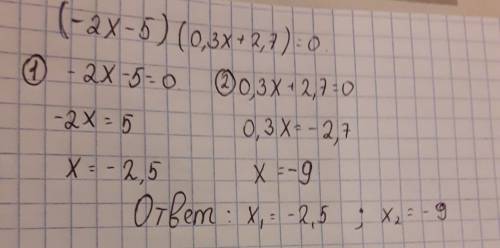 (-2x-5)(0,3x+2,7)=0
① -2x-5=0 ② 0,3x+2,7=0
-2x=5 0,3x=-2,7
x=-2,5 x=-9
Ответ: x₁=-2,5 ; x₂=-9